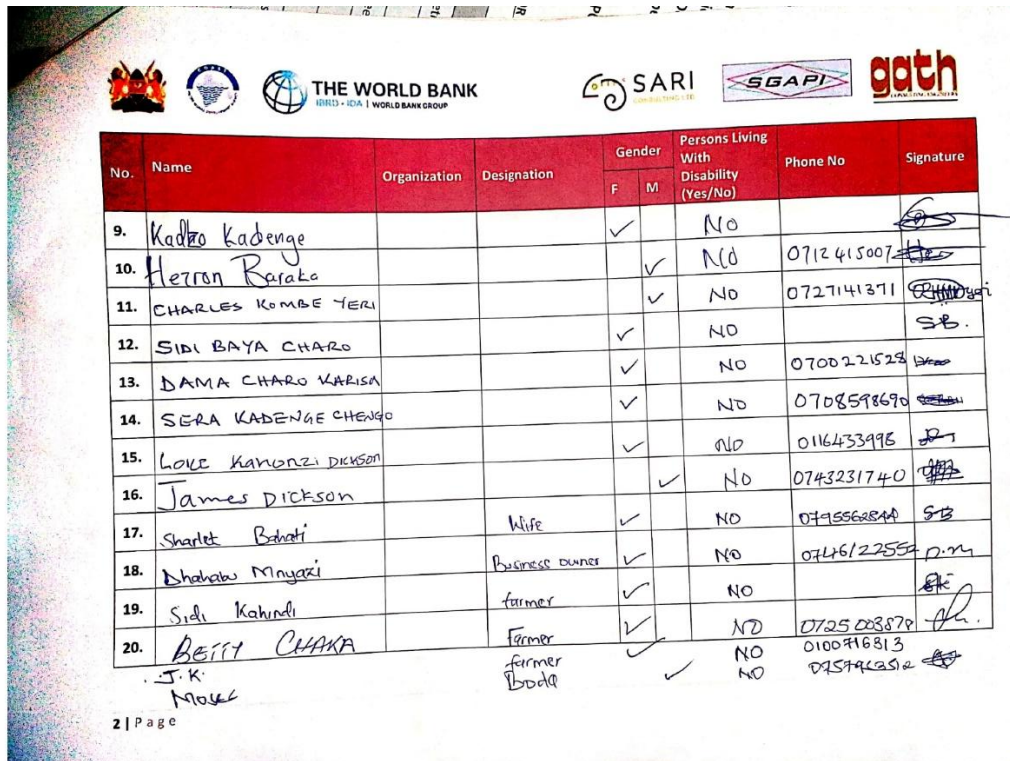 THE WORLD BANK
IBRD • IDA | WORLD BANK GROUP
SARI
CONSULTING LTD
SGAPI
gath
CONSULTING ENGINEERS
No. Name Organization Designation Gender F M Persons Living With Disability (Yes/No) Phone No Signature
9. Kadzo Kadenge ✓ NO
10. Herron Baraka ✓ NO 0712415007
11. CHARLES KOMBE YERI ✓ NO 0727141371
12. SIDI BAYA CHARO ✓ NO SB.
13. DAMA CHARO KARISA ✓ NO 0700221528
14. SERA KADENGE CHENGO ✓ NO 0708598690
15. Love Kanonzi DICKSON ✓ NO 0116433998
16. James DICKSON ✓ NO 0743231740
17. Sharlet Bahati Wife ✓ NO 0795562844 SB
18. Dhahabu Mnyazi Business owner ✓ NO 0746122552 D.M
19. Sidi Kahindi farmer ✓ NO
20. BETTY CHAKA Farmer ✓ NO 0725003878
J.K. farmer ✓ NO 0100716313
Boda ✓ NO
2 | Page